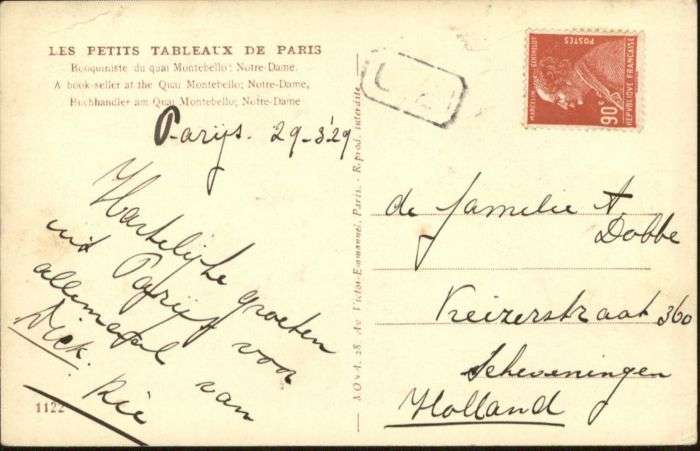 LES PETITS TABLEAUX DE PARIS
Bouquiniste du quai Montebello; Notre-Dame.
A book-seller at the Quai Montebello; Notre-Dame,
Buchhandler am Quai Montebello; Notre-Dame
Parijs. 29-3'29
Hartelijke groeten
uit Parijs voor
allemaal van
Dick.
Rie
1122
NOYA, 28, Av. Victor-Emmanuel, Paris. - Reprod. interdite
POSTES
REPVBLIQUE FRANÇAISE
90c
de familie A,
Dobbe
Keizerstraat 360
Scheveningen
Holland